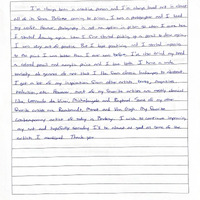 I've always been a creative person and I've always loved art in almost
all its forms. Before coming to prison, I was a photographer and I loved
my work. However, photography is not an option in prison so when I came here
I started drawing again. When I first started picking up a pencil to draw again
I was very out of practice. But I kept practicing and I started improving
to the point I was better than I ever was before. I've also tried my hand
at colored pencil and acrylic paint and I love both. I have a wide
variety of genres of art that I like from classic landscapes to abstract.
I get a lot of my inspiration from other artists, books, magazines,
television, etc. However most of my favorite artists are mostly classical
like, Leonardo da Vinci, Michelangelo and Raphael. Some of my other
favorite artists are Rembrandt, Monet and Van Gogh. My favorite
contemporary artist of today is Banksy. I wish to continue improving
my art and hopefully someday I'll be almost as good as some of the
artists I mentioned. Thank you.